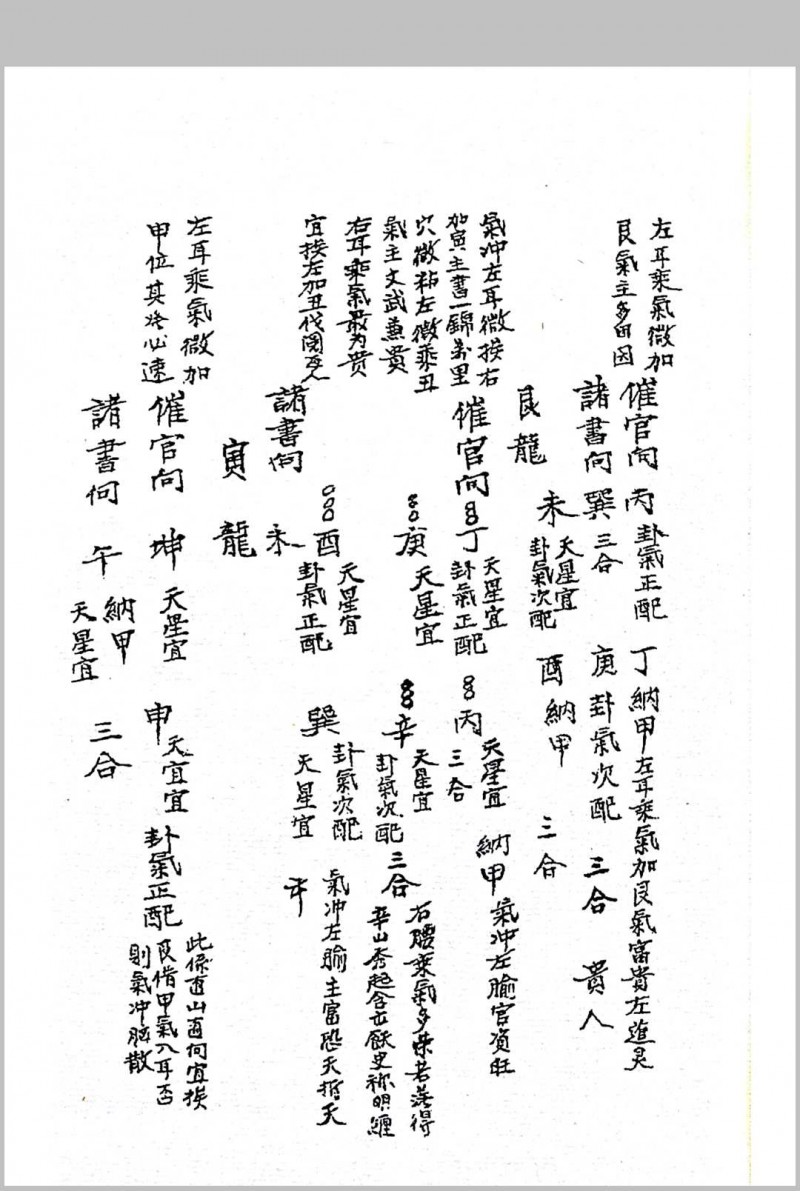 左耳乘氣微加
艮氣主多田因
催官向 丙 卦氣正配 丁 納甲 左耳乘氣加艮氣富貴左進
諸書向 巽 三合 庚 卦氣次配 三合 貴人
未 天星宜 卦氣次配 酉 納甲 三合
艮龍
氣冲左耳微挨右
加寅主書一錦萬里
穴微粘左微乘丑
氣主文武兼貴
右耳乘氣最为贵
宜挨左加丑伐國
催官向 丁 天星宜 卦氣正配 丙 天星宜 三合 納甲 氣冲左腧官资旺
庚 天星宜 辛 天星宜 卦氣次配 三合 右腰乘氣多荣若
辛山秀起
諸書向 酉 天星宜 卦氣正配 巽 卦氣次配 天星宜 氣冲左腧主富恐夭
未
寅龍
左耳乘氣微加
甲位其必速
催官向 坤 天星宜 申 天宜宜 卦氣正配
此係山向宜挨
艮借甲氣入耳否
則氣冲腦散
諸書向 午 納甲 天星宜 三合